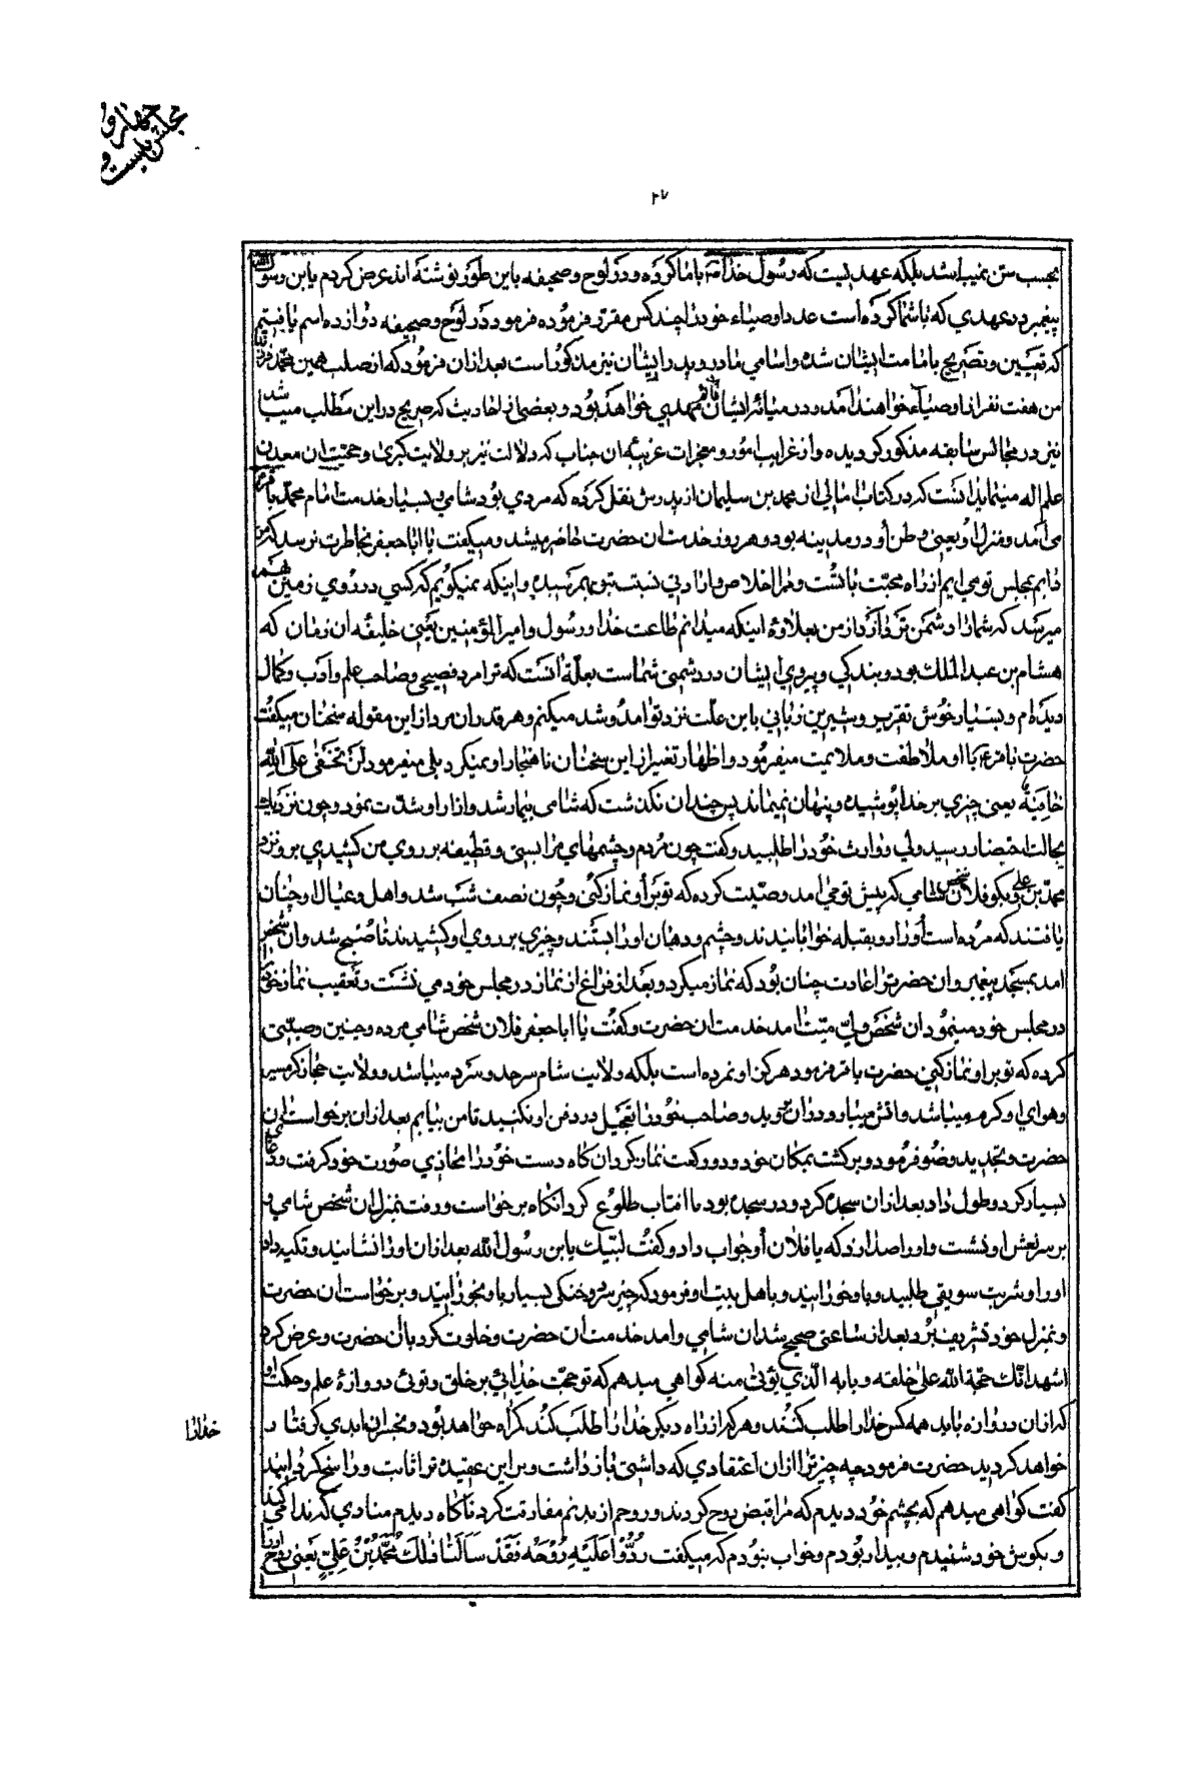 مجلس بیست و
چهارم
۲۷
بحسب سن نمیباشد بلکه عهدیست که رسول خدا ص با ما کرده و در لوح و صحیفه باین طور نوشته اند عرض کردم یابن رسول الله
پیغمبر در عهدی که با شما کرده است عدد اوصیاء خود را چند کس مقرر فرموده فرمود در لوح و صحیفه دوازده اسم یافتیم
که تعیین و تصریح بامامت ایشان شده و اسامی مادر و پدر ایشان نیز مذکور است بعد ازان فرمود که از صلب همین محمد فرزند
من هفت نفر از اوصیاء خواهند امد و در میانه ایشان قائم مهدی خواهد بود و بعضی از احادیث که صریح در این مطلب میباشد
نیز در مجالس سابقه مذکور گردیده و از غرایب امور و معجزات غریبه ان جناب که دلالت نیز بر ولایت کبری و حجتیت ان معدن
علم اله مینماید انست که در کتاب امالی از محمد بن سلیمان از پدرش نقل کرده که مردی بود شامی و بسیار خدمت امام محمد باقر ع
می امد و منزل او یعنی وطن او در مدینه بود و هر روز خدمت ان حضرت حاضر میشد و میگفت یا ابا جعفر بخاطرت نرسد که من
دایم بمجلس تو می ایم از راه محبت با تست و مرا اخلاص و ارادتی نسبت بتو بهم رسیده و اینکه نمیگویم که کسی در روی زمین بهم
میرسد که شما را دشمن تر دارد از من بعلاوه اینکه میدانم طاعت خدا و رسول و امیر المؤمنین یعنی خلیفه ان زمان که
هشام بن عبد الملک بود و بندگی و پیروی ایشان در دشمنی شماست بعلة انست که ترا مرد فصیحی و صاحب علم و ادب و کمال
دیده ام و بسیار خوش تقریر و شیرین زبانی باین علت نزد تو امد و شد میکنم و هر قدر ان مرد از این مقوله سخنان میگفت
حضرت باقر ع با او ملاطفت و ملایمت میفرمود و اظهار تغیر از این سخنان ناهنجار او نمیکرد بلی میفرمود لن تخفی علی الله
خافیة یعنی چیزی بر خدا پوشیده و پنهان نمیماند پس چندان نگذشت که شامی بیمار شد و ازار او شدت نمود و چون نزدیک
بحالت احتضار رسید ولی و وارث خود را طلبید و گفت چون مردم و چشمهای مرا بستی و قطیفه بر روی من کشیدی برو نزد
محمد بن علی و بگو فلان شخص شامی که پیش تو می امد وصیت کرده که تو بر او نماز کنی و چون نصف شب شد و اهل و عیال او چنان
یافتند که مرده است او را رو بقبله خوابانیدند و چشم و دهان او را بستند و چیزی بر روی او کشیدند تا صبح شد و ان شخص
امد بمسجد پیغمبر و ان حضرت را عادت چنان بود که نماز میکرد و بعد از فراغ از نماز در مجلس خود می نشست و تعقیب نماز خود را
در مجلس خود مینمود ان شخص ولی میت امد خدمت ان حضرت و گفت یا ابا جعفر فلان شخص شامی مرده و چنین وصیتی
کرده که تو بر او نماز کنی حضرت باقر فرمود هرگز او نمرده است بلکه ولایت شام سرحد و سرد میباشد و ولایت حجاز گرمسیر
و هوای او گرم میباشد و اتش میبارد و ان بروید و صاحب خود را تعجیل در دفن او نکنید تا من بیایم بعد ازان برخواست ان
حضرت و تجدید وضو فرمود و برگشت بمکان خود و دو رکعت نماز کرد ان گاه دست خود را محاذی صورت خود گرفت و دعای
بسیار کرد و طول داد بعد ازان سجده کرد و در سجده بود تا افتاب طلوع کرد انگاه برخواست و رفت بمنزل ان شخص شامی و
بر سر نعش او نشست و او را صدا زد که یا فلان او جواب داد و گفت لبیک یابن رسول الله بعد ازان او را نشانید و تکیه داد
او را و شربت سویقی طلبید و باو خورانید و باهل بیت او فرمود که چیز سرد خنکی بسیار باو بخورانید و برخواست ان حضرت
و بمنزل خود تشریف برد بعد از ساعتی صحیح شد ان شامی و امد خدمت ان حضرت و خلوت کرد با ان حضرت و عرض کرد
اشهد انک حجة الله علی خلقه و بابه الذی یؤتی منه گواهی میدهم که تو حجت خدائی بر خلق و توئی دروازهٔ علم و حکمت او
که ازان دروازه باید همه کس خدا را طلب کنند و هر که از راه دیگر خدا را طلب کند گمراه خواهد بود و بخسران ابدی گرفتار
خواهد گردید حضرت فرمود چه چیز ترا ازان اعتقادی که داشتی بازداشت و بر این عقیده ترا ثابت و راسخ گردانید
گفت گواهی میدهم که بچشم خود دیدم که مرا قبض روح کردند و روحم از بدنم مفارقت کرد ناگاه دیدم منادی که ندا میکند
و بگوش خود شنیدم و بیدار بودم و خواب نبودم که میگفت ردوا علیه روحه فقد سالنا ذلک محمد بن علی یعنی روح او را
خدا را